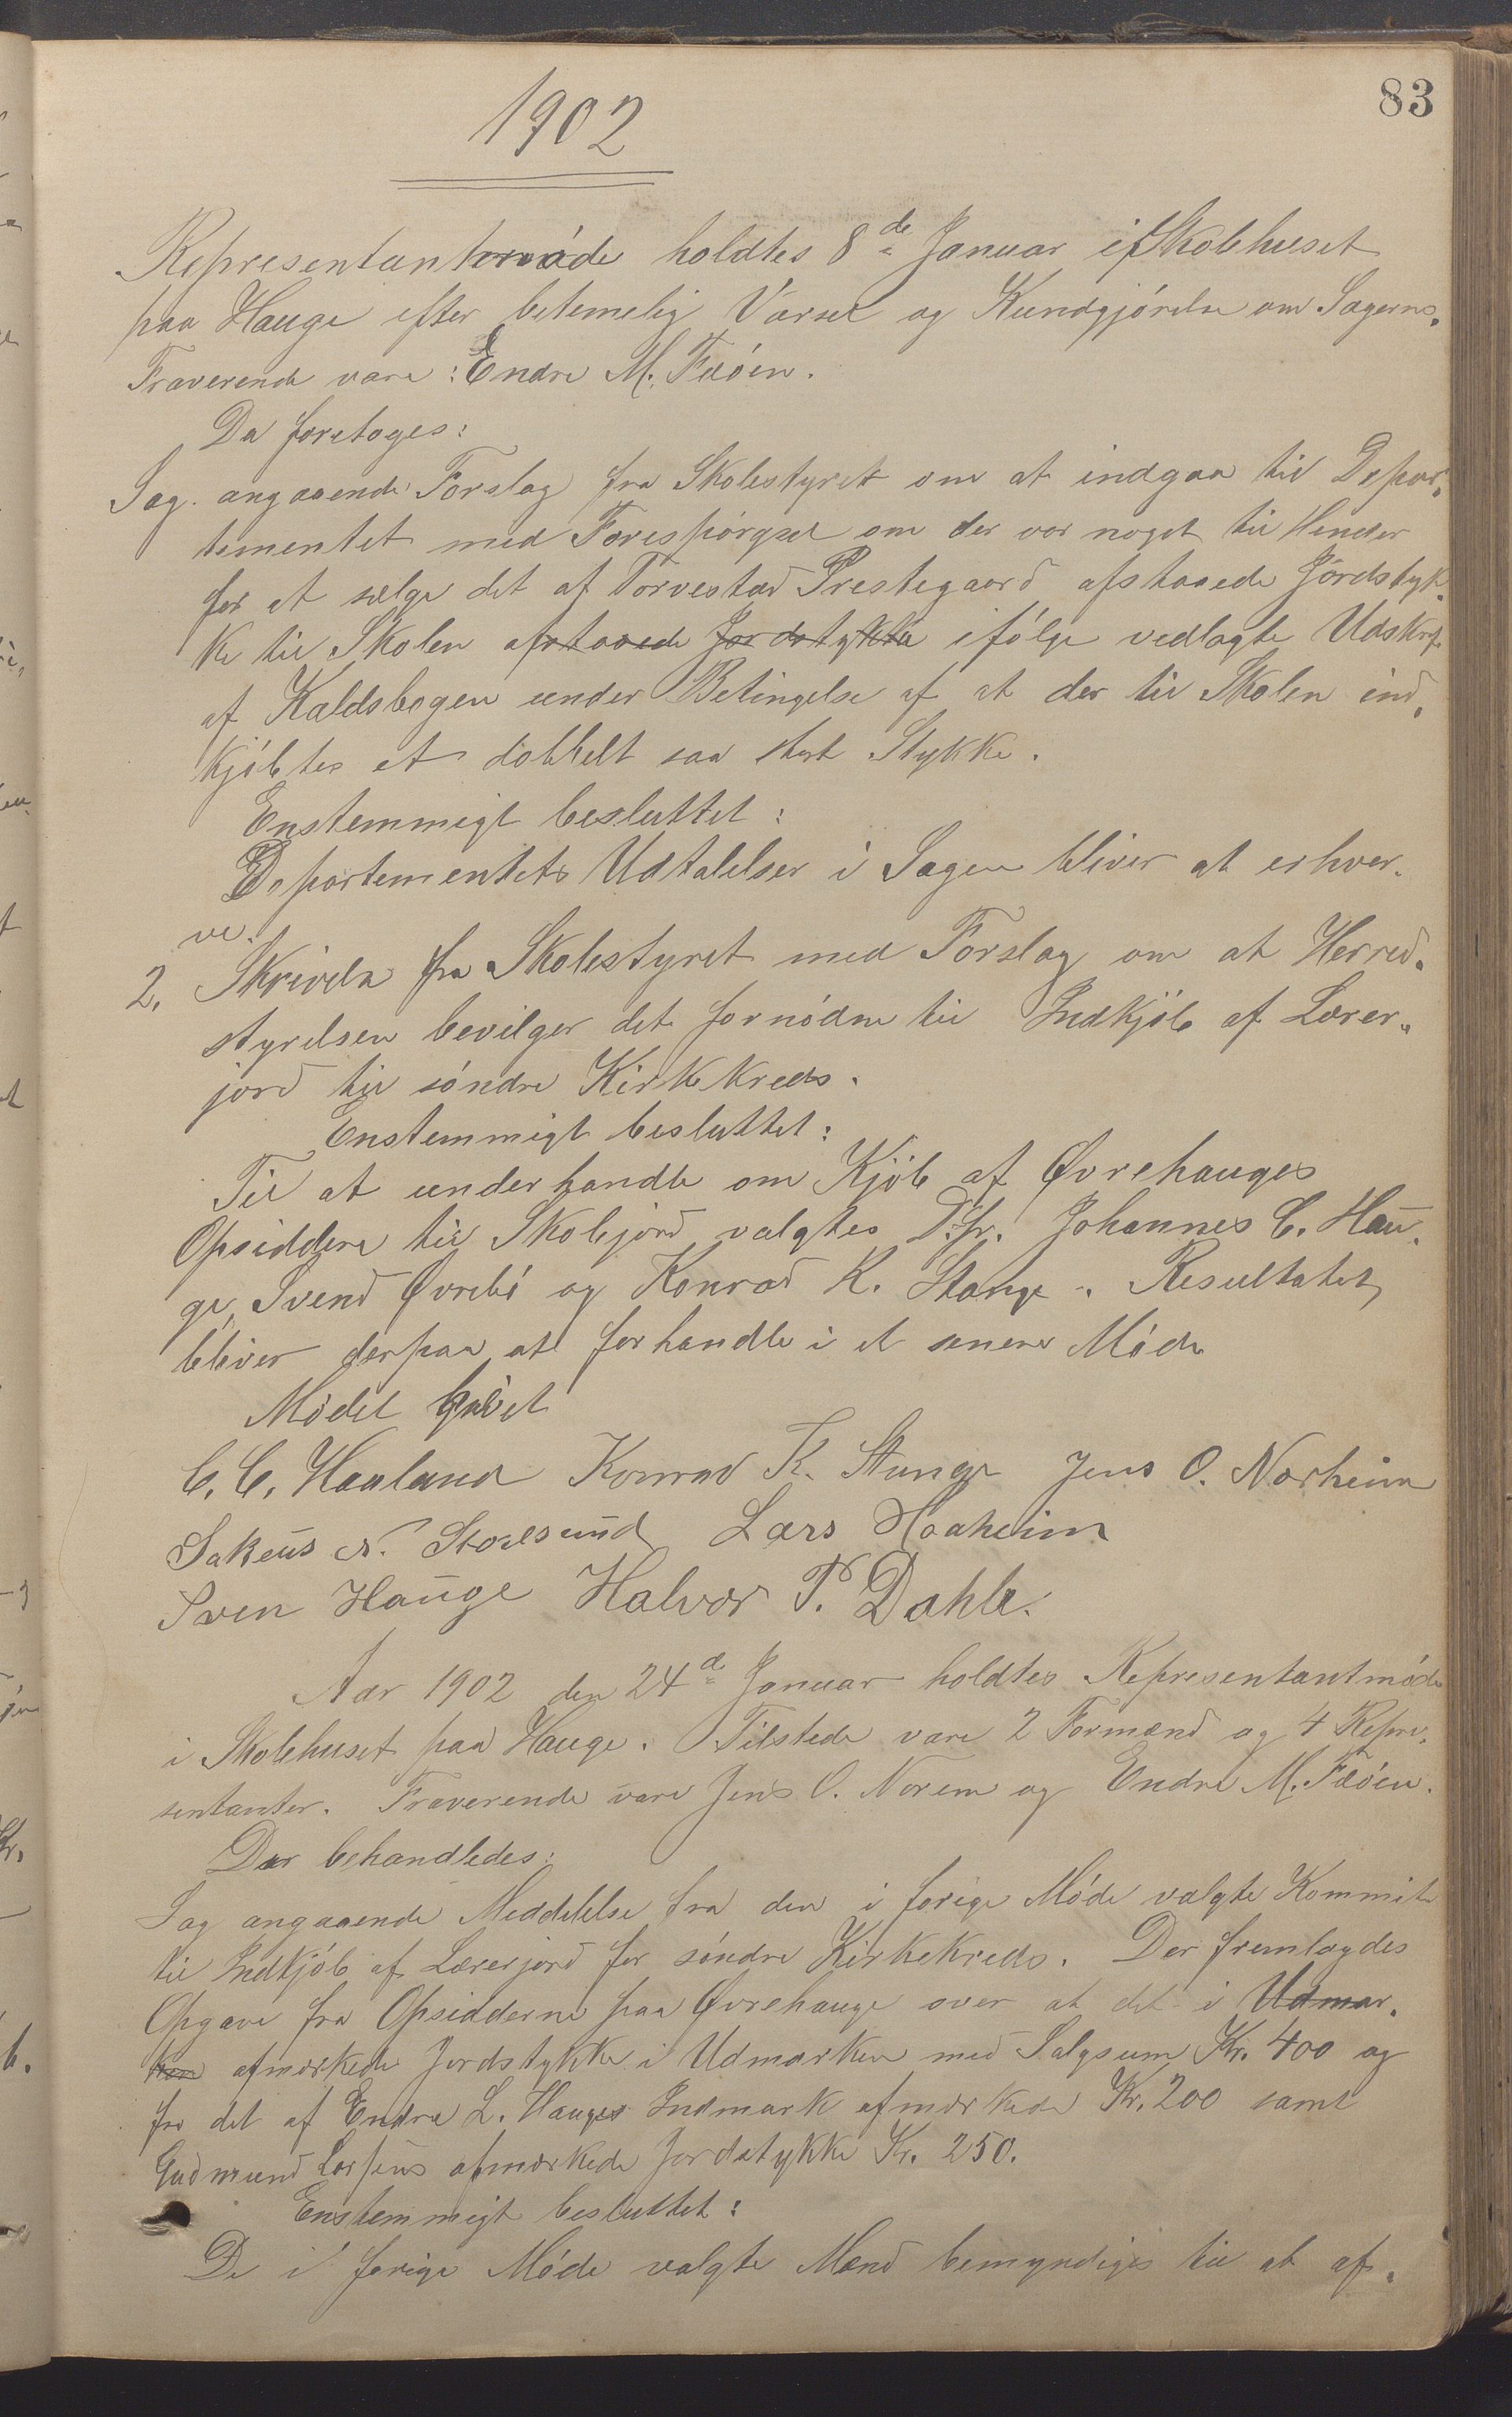 83
1902
Representantmøde holdtes 8de Januar i Skolehuset
paa Hauge efter betemelig Varsel og Kundgjørelse om Sagerne.
Fraverende vare: Endre M. Fæøen.
Da foretoges:
Sag angaaende Forslag fra Skolestyret om at indgaa til Depar-
tementet med Forespørgsel om der var noget til Hinder
for at sælge det af Torvestad Prestegaard afstaaede Jordstyk-
ke til Skolen afstaaede Jordstykke ifølge vedlagte Udskrift
af Kaldsbogen under Betingelse af at der til Skolen ind-
kjøbtes et dobbelt saa stort Stykke.
Enstemmigt besluttet:
Departementets Udtalelser i Sagen bliver at erhver-
ve.
2. Skrivelse fra Skolestyret med Forslag om at Herred-
styrelsen bevilger det fornødne til Indkjøb af Lærer-
jord til søndre Kirkekreds.
Enstemmigt besluttet:
Til at underhandle om Kjøb af Øvrehauges
Opsiddere til Skolejord valgtes D'hr. Johannes C. Hau-
ge, Svend Øvrebø og Konrad K. Stange. Resultatet
bliver derpaa at forhandle i et senere Møde
Mødet hævet
C. C. Haaland Konrad K. Stange Jens O. Norheim
Sakeus N. Stoelsund Lars Haaheim
Sven Hauge Halvor T. Dahle.
Aar 1902 den 24de Januar holdtes Representantmøde
i Skolehuset paa Hauge. Tilstede vare 2 Formænd og 4 Repre-
sentanter. Fraverende vare Jens O. Norem og Endre M. Fæøen.
Der behandledes:
Sag angaaende Meddelelse fra den i forige Møde valgte Kommite
til Indkjøb af Lærerjord for søndre Kirkekreds. Der fremlagdes
Opgave fra Opsidderne paa Øvrehauge over at det i Udmar-
ken afmerkede Jordstykke i Udmarken med Salgsum Kr. 400 og
for det af Endre L. Hauges Indmark afmerkede Kr. 200 samt
Gudmund Larsens afmerkede Jordstykke Kr. 250.
Enstemmigt besluttet:
De i forige Møde valgte Mænd bemyndiges til at af-